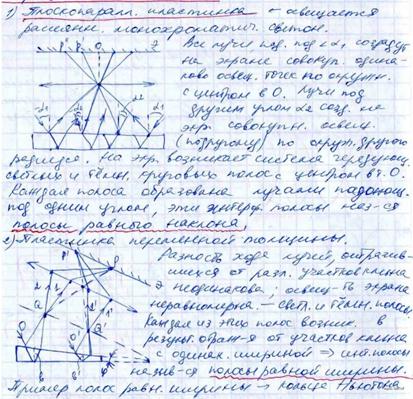 1) Плоскопаралл. пластинка – освещается
рассеян. монохроматич. светом.
Все лучи пад. под ∠α₁ создадут
на экране совокуп. одина-
ково освещ. точек по окружн.
с центром в O. Лучи под
другим углом α₂ созд. на
экр. совокупн. освещ.
(по другому) по окруж. другого
радиуса. На экр. возникает система чередующ.
светлых и тёмн. круговых полос с центром в т. O.
Каждая полоса образована лучами падающ.
под одним углом, эти интерф. полосы наз-ся
полосы равного наклона
2) Пластинка переменной толщины.
Разность хода лучей, отразив-
шихся от разл. участков клина
неодинакова; освещ-ть экрана
неравномерна – светл. и тёмн. полосы
Каждая из этих полос возник. в
результ. отраж-я от участков клина
с одинак. шириной ⇒ инт. полосы
назыв-ся полосы равной ширины.
Пример полос равн. ширины → кольца Ньютона